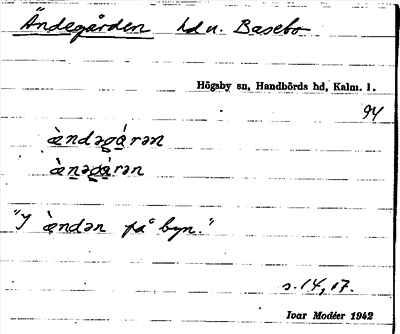 Ändegården hd u. Basebo
Högsby sn, Handbörds hd, Kalm. l.
94
ä̀ndəgárən
ä̀nəgárən
"I ä̀ndən på byn."
s. 14, 17.
Ivar Modéer 1942